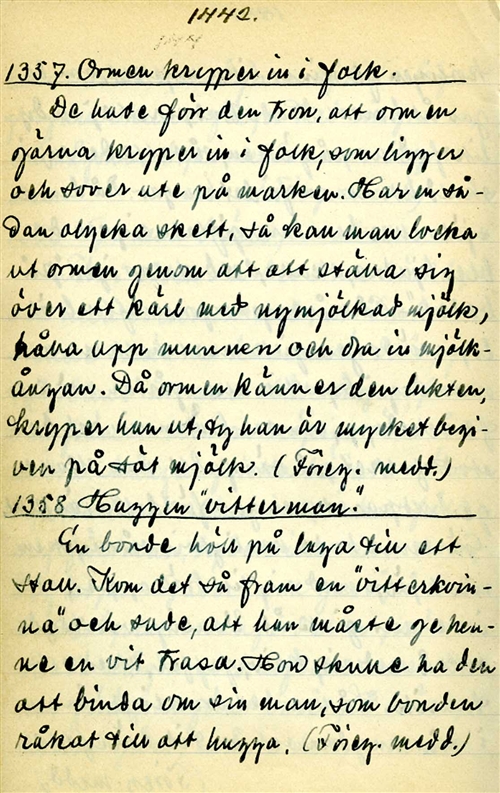 1442.
1357. Ormen kryper in i folk.
De hade förr den tron, att ormen
gärna kryper in i folk, som ligger
och sover ute på marken. Har en så-
dan olycka skett, så kan man locka
ut ormen genom att att ställa sig
över ett kärl med nymjölkad mjölk,
hålla upp munnen och dra in mjölk-
ångan. Då ormen känner den lukten,
kryper han ut, ty han är mycket begi-
ven på söt mjölk. (Föreg. medd.)
1358 Huggen "vitterman".
En bonde höll på laga till ett
stall. Kom det så fram en "vitterkvin-
na" och sade, att han måste ge hen-
ne en vit trasa. Hon skulle ha den
att binda om sin man, som bonden
råkat till att hugga. (Föreg. medd.)